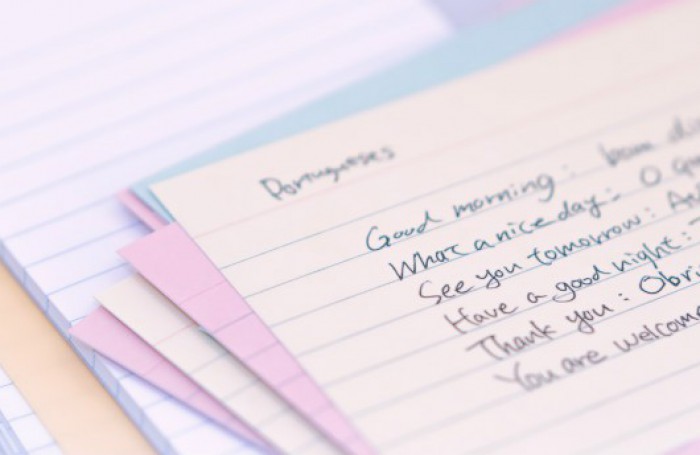 Portugueses
Good morning : bom di
What a nice day : O q
See you tomorrow : At
Have a good night :
Thank you : Obri
You are welcome